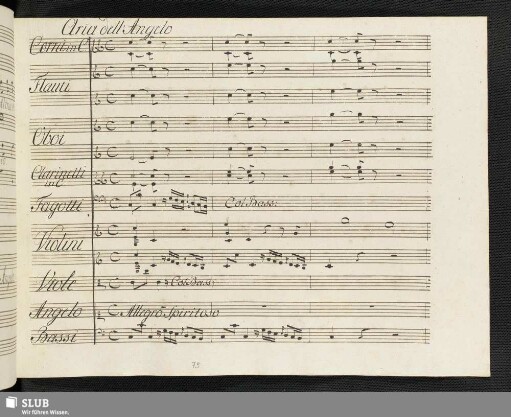 Aria dell'Angelo
Corni in C
Flauti
Oboi
Clarinetti
in C
Fagotti
Col Bassi:
Violini
Viole
Col Bassi
Angelo
Allegro Spiritoso
Bassi
73
SLUB
Wir führen Wissen.